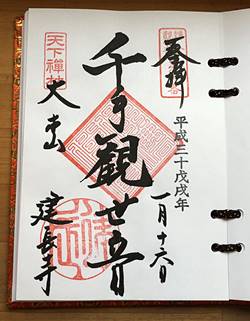 奉拝
平成三十戊戌年
一月十六日
千手觀世音
天下禅林
大本山
建長寺